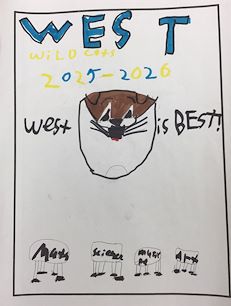 WEST
WiLD cats
2025-2026
West is BEST!
Math
Science
Arts